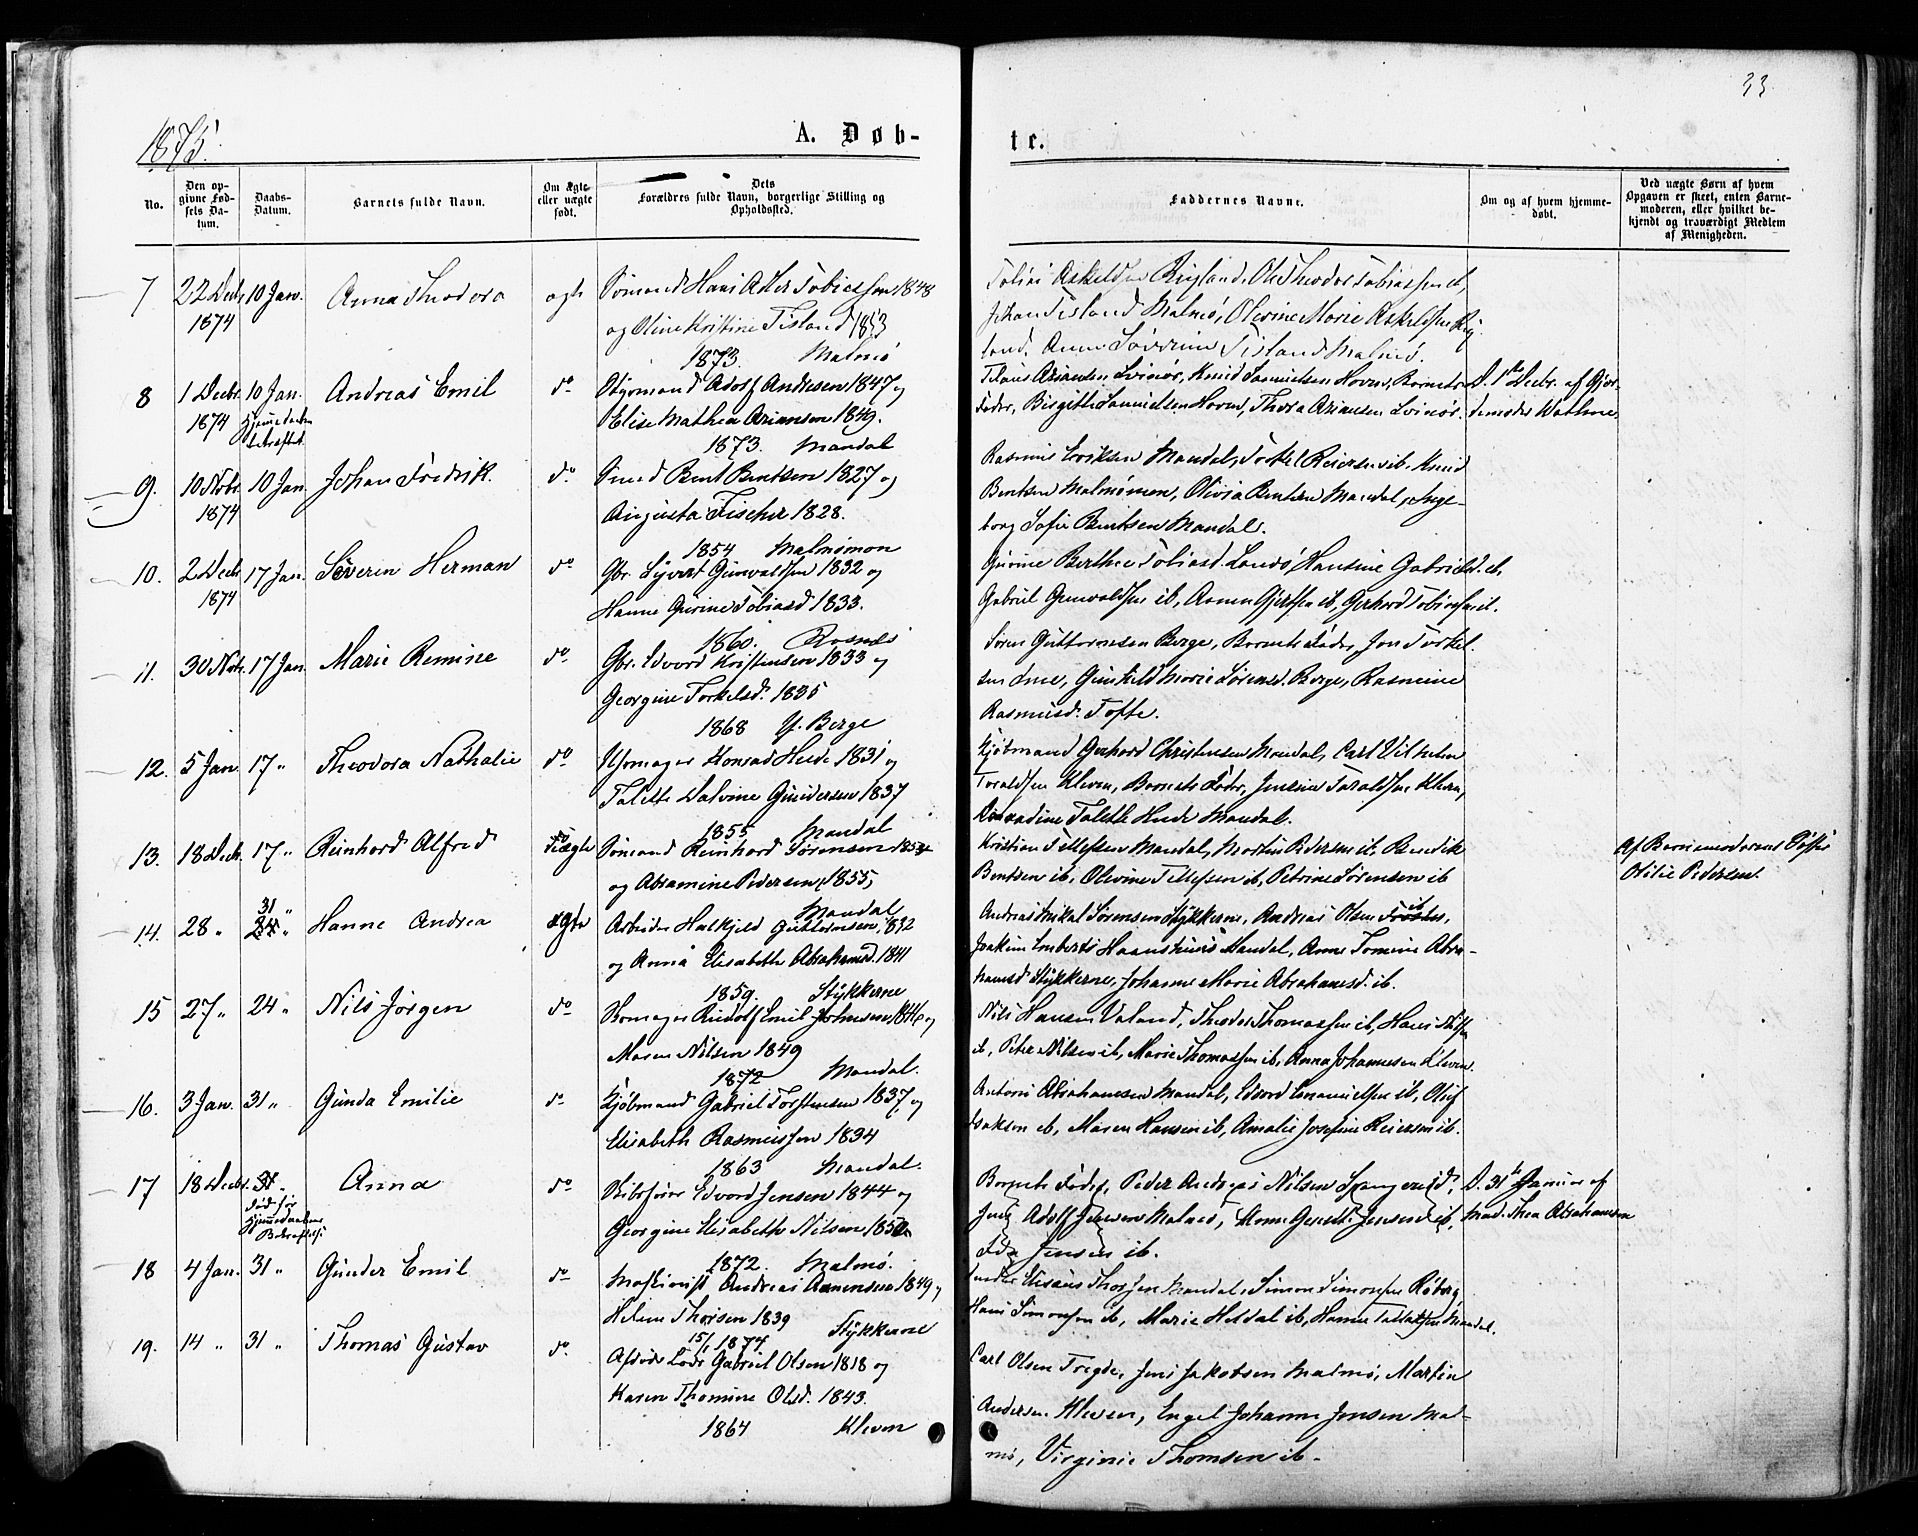 33
1875.
A. Døb-
te.
No.
Den op-
givne Fød-
sels Da-
tum.
Daabs-
Datum.
Barnets fulde Navn.
Om ægte
eller uægte
født.
Dets
Forældres fulde Navn, borgerlige Stilling og
Opholdssted.
Faddernes Navne.
Om og af hvem hjemme-
døbt.
Ved uægte Børn af hvem
Opgaven er skeet, enten Barne-
moderen, eller hvilket be-
kjendt og troværdigt Medlem
af Menigheden.
7 22 Decbr. 10 Jan. Anna Theodora ægte Sømand Hans Asker Tobiassen 1848
1874 og Oline Kristine Tisland 1853
1873. Malmø
Tobias Askeldsen Risland, Ole Theodor Tobiassen ib,
Johan Tisland Malmø, Olevine Marie Askeldsen Ris-
land, Anne Severine Tisland Malmø.
8 1 Decbr. 10 Jan. Andreas Emil do Styrmand Adolf Andresen 1847 og
1874 Hjemmedaaben
bekræftet. Elise Mathea Ariansen 1849.
1873. Mandal
Ariansen Svinør, Knud Samuelsen Hoven, Barnets
Fader, Birgithe Samuelsen Hoven, Thora Ariansen Svinør.
D. 1ste Decbr. af Gjor-
demoder Wathne
9. 10 Novbr. 10 Jan. Johan Fredrik. do Smed Bent Bentsen 1827 og
1874 Augusta Fischer 1828.
1854 Malmømon
Rasmus Eriksen Mandal, Torkel Reiersen ib, Knud
Bentsen Malmømon, Olivia Bentsen Mandal, Inge-
borg Sofie Bentsen Mandal.
10. 2 Decbr. 17 Jan. Severin Herman do Gbr. Syvert Gunvaldsen 1832 og
1874 Hanne Gurine Tobiasd 1833.
1860. Rosnes
Gurine Berthe Tobiasd. Landø, Hansine Gabrielsd. ib,
Gabriel Gunvaldsen ib, Aanen Gjertsen ib, Gerhard Tobiassen ib.
11. 30 Novbr. 17 Jan. Marie Remine do Gbr. Edvard Kristensen 1833 og
Georgine Torkelsd. 1835
1868 Y. Berge
Søren Guttormsen Berge, Barnets Fader, Jon Torkel-
sen Ime, Gunhild Marie Sørensd. Berge, Rasmine
Rasmusd. Tofte.
12. 5 Jan. 17 " Theodora Nathalie do Uhrmager Konrad Heide 1831 og
Talette Valvine Gundersen 1837
1855 Mandal
Kjøbmand Gerhard Christensen Mandal, Carl Vilhelm
Taraldsen Kleven, Barnets Fader, Jensine Taraldsen Kleven,
Konradine Talette Heide Mandal.
13. 18 Decbr. 17 " Reinhard Alfred uægte Sømand Reinhard Sørensen
og Abramine Pedersen 1855,
Mandal
Kristian Tellefsen Mandal, Martin Pedersen ib, Bendik
Bentsen ib, Olevine Tellefsen ib, Petrine Sørensen ib
Af Barnemoderens Søster
Otilie Pedersen.
14. 28 " 31 " Hanne Andrea ægte Arbeider Halkjeld Guttormsen,
og Anna Elisabeth Abrahamsd. 1841
1859. Stykkerne
Andreas Mikal Sørensen Stykkerne, Andreas Olsen ib,
Joakim Mandal, Anne Tomine Abra-
hamsd Stykkerne, Johanne Marie Abrahamsd. ib.
15 27 " 24 " Nils Jørgen do Rudolf Emil Johnsen 1846 og
Maren Nilsen 1849
1872 Mandal.
Nils Hansen Valand, Theodor Thomassen ib, Hans
ib, Peter Nilsen ib, Marie Thomassen ib, Anna Johannesen Kleven.
16. 3 Jan. 31 " Gunda Emilie do Kjøbmand Gabriel Torstensen 1837, og
Elisabeth Rasmussen 1834
1863 Mandal.
Antoni Abrahamsen Mandal, Edvard Emanuelsen ib, Oluf
Isaksen ib, Maren Hansen ib, Amalie Josefine Reiersen ib.
17 18 Decbr. 31 " Anna do Edvard Jensen 1844 og
død før
Hjemmedaabens
Bekræftelse Georgine Elisabeth Nilsen 1850.
1872. Malmø.
Barnets Fader, Peder Andreas Nilsen Spangereid,
Jens Adolf Jensen Malmø, Hanne Jensen ib,
Ida Jensen ib.
D. 31te Januar af
Mad. Thea Abrahamsen
18 4 Jan. 31 " Gunder Emil do Maskinist Andreas Aanensen 1849 og
Helene Thorsen 1839
15/1 1874. Stykkerne
Gunder Elisæus Thorsen Mandal, Simon Simonsen Røberg,
Hans Simonsen ib, Marie Heldal ib, Hanne Mandal.
19. 14 " 31 " Thomas Gustav do Afdøde Lods Gabriel Olsen 1818 og
Karen Thomine Olsd. 1843.
1864 Kleven
Carl Olsen Tregde, Jens Jakobsen Malmø, Martin
Andersen Kleven, Engel Johanne Jensen Mal-
mø, Virginie Thomsen ib.